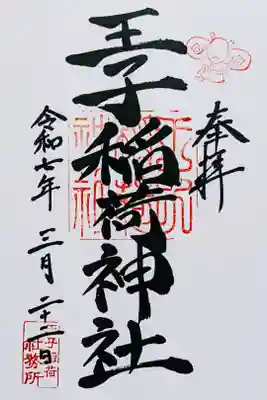 奉拝
王子稲荷神社
令和七年 三月 二十二日
王子稲荷
社務所